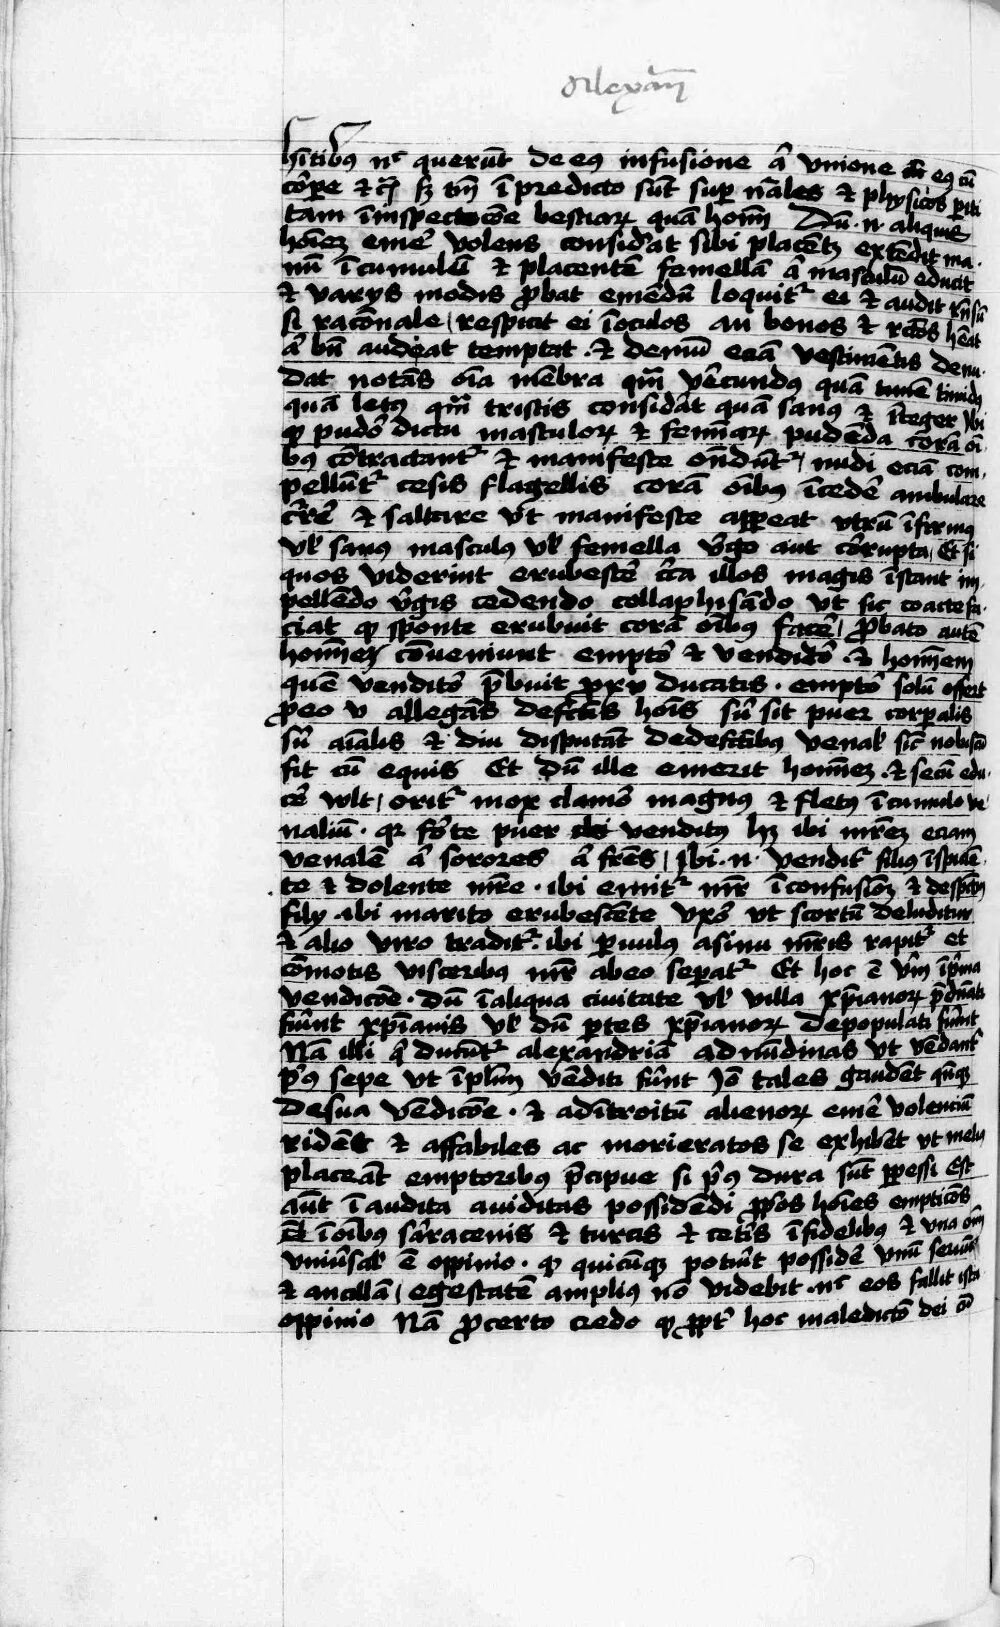 Alexan̄
hn̄tibꝯ nͨ querūt de eꝯ infusione aͥ vnione eꝯ cū
cōrpe ⁊ cͣ sꝫ tn̄ ī predicto sūt sup nāles ⁊ physicos pīti
tam ī inspectōe bestiaꝝ quā homī Dū .n. aliquis
hoīeꝫ emē volens considāt sibi placētꝫ extēdit ma
nū ī cumulū ⁊ placentē femellā aͥ masculū educit
⁊ varys modis ꝓbat emēdū loquitᷣ ei ⁊ audit rn̄sū
si racōnale / respicit ei ī oculos an bonos ⁊ rectos hēat
aͥ bn̄ audeat temptat . ⁊ demū eciā vestimētis denu
dat notās oīa mēbra qm̄ vēcundꝯ quā timidꝯ
quā letꝯ qm̄ tristis considāt quā sanꝯ ⁊ īteger Ibi
ꝙ pudōr dictu masculoꝝ ⁊ femīaꝝ pudēda corā oī
bꝯ cōtractantᷣ ⁊ manifeste ondūtᷣ / nudi eciā com
pellūtᷣ cesis flagellis corā oībꝯ īcedē ambulare
cr̄rē ⁊ saltare vt manifeste appeat vtrū īfirmꝯ
vl̄ sanꝯ masculꝯ vl̄ femella vͥgo aut cōrrupta / Et si
quos viderint erubescē cͥca illos magis īstant im
pellēdo vͥgis cedendo collaphisādo vt sic coacte fa
ciat ꝙ sponte erubuit corā oībꝯ facē / ꝓbato autē
homīeꝫ cōveniunt emptōr ⁊ venditōr . ⁊ homīem
quē venditōr p̄buit ꝓ xv ducatis . emptōr solū offert
ꝓ eo v allegās defectus hoīs sū sit puer corꝑalis
sū aīalis ⁊ diu disputāt de defectibꝯ venal̄ sic nobiscū
fit cū equis Et dū ille emerit homīeꝫ . ⁊ secū edu
cē wlt / oritᷣ mox clamōr magnꝯ ⁊ fletꝯ ī cumulo ve
naliū . qꝛ forte puer venditꝯ hꝫ ibi mr̄eꝫ eciam
venalē aͥ sorores aͥ frēs / Ibi .n. venditᷣ filiꝯ īspiciē
te ⁊ dolente mr̄e . ibi emitᷣ mr̄ ī confusionꝫ ⁊ despectū
fily . ibi marito erubescēte vxōr vt scortū deluditur
⁊ alio viro traditᷣ . ibi ꝑuulꝯ a sinu mr̄is rapitᷣ et
cōmotis visceribꝯ mr̄ ab eo sepatᷣ Et hoc ē vm̄ ī p̄ma
vendicōe . Dū ī aliqua ciuitate vl̄ villa xp̄ianoꝝ p̄dnāti
fūint xp̄ianis vl̄ dū ptes xp̄ianoꝝ depopulati fūint
Nā illi qͥ ducūtᷣ alexandriā ad nūdinas vt vēdantᷣ
pͥꝯ sepe vt ī plm̄ vēditi fūint Iō tales gaudēt qn̄qꝫ
de sua vēdicōe . ⁊ ad ītroitū alienoꝝ emē volenciū
ridēt ⁊ affabiles ac morieratos se exhibēt vt meliꝯ
placeāt emptoribꝯ p̄cipue si pͥꝯ dura sūt ꝑpessi Est
aūt ī audita auiditas possidēdi ꝓpōs hoīes empticōs
ī oībꝯ sāracenis ⁊ turcis ⁊ cetīs īfidelibꝯ ⁊ vna oīm
vniūsal̄ ē oppinio . ꝙ quicūqꝫ potūit possidē vnū seruū
⁊ ancillā / egestatē ampliꝯ nō videbit . nͨ eos fallit ista
oppinio Nā ꝓcerto credo ꝙ ꝓpt̄ hoc maledictō dei